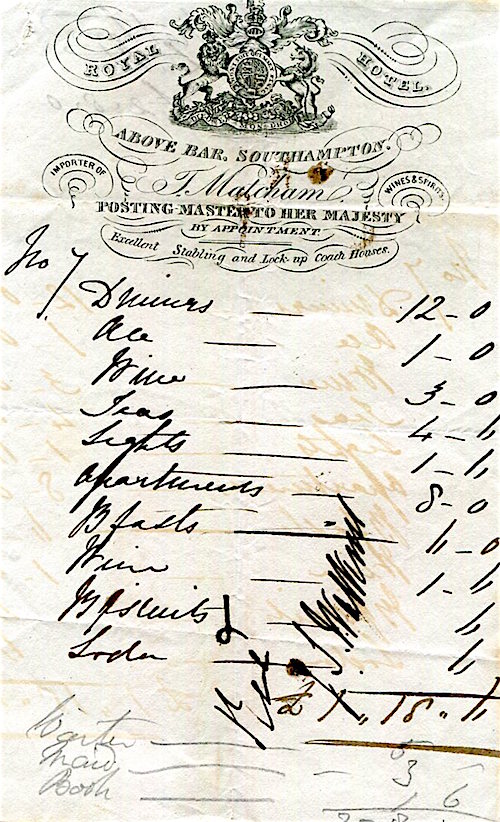 ROYAL HOTEL.
ABOVE BAR, SOUTHAMPTON.
IMPORTER OF WINES & SPIRITS
T. Malcham
POSTING-MASTER TO HER MAJESTY
BY APPOINTMENT.
Excellent Stabling and Lock-up Coach Houses.
No 7
Dinners — 12-0
Ale — 1-0
Wine — 3-0
Teas — 4-"
Lights — 1-"
Apartments 8-0
Bfasts — "-0
Wine — 1-"
Biscuits "
Soda — "
£1"18""
Waiter — 5
Maid — 3
Book — 1 6